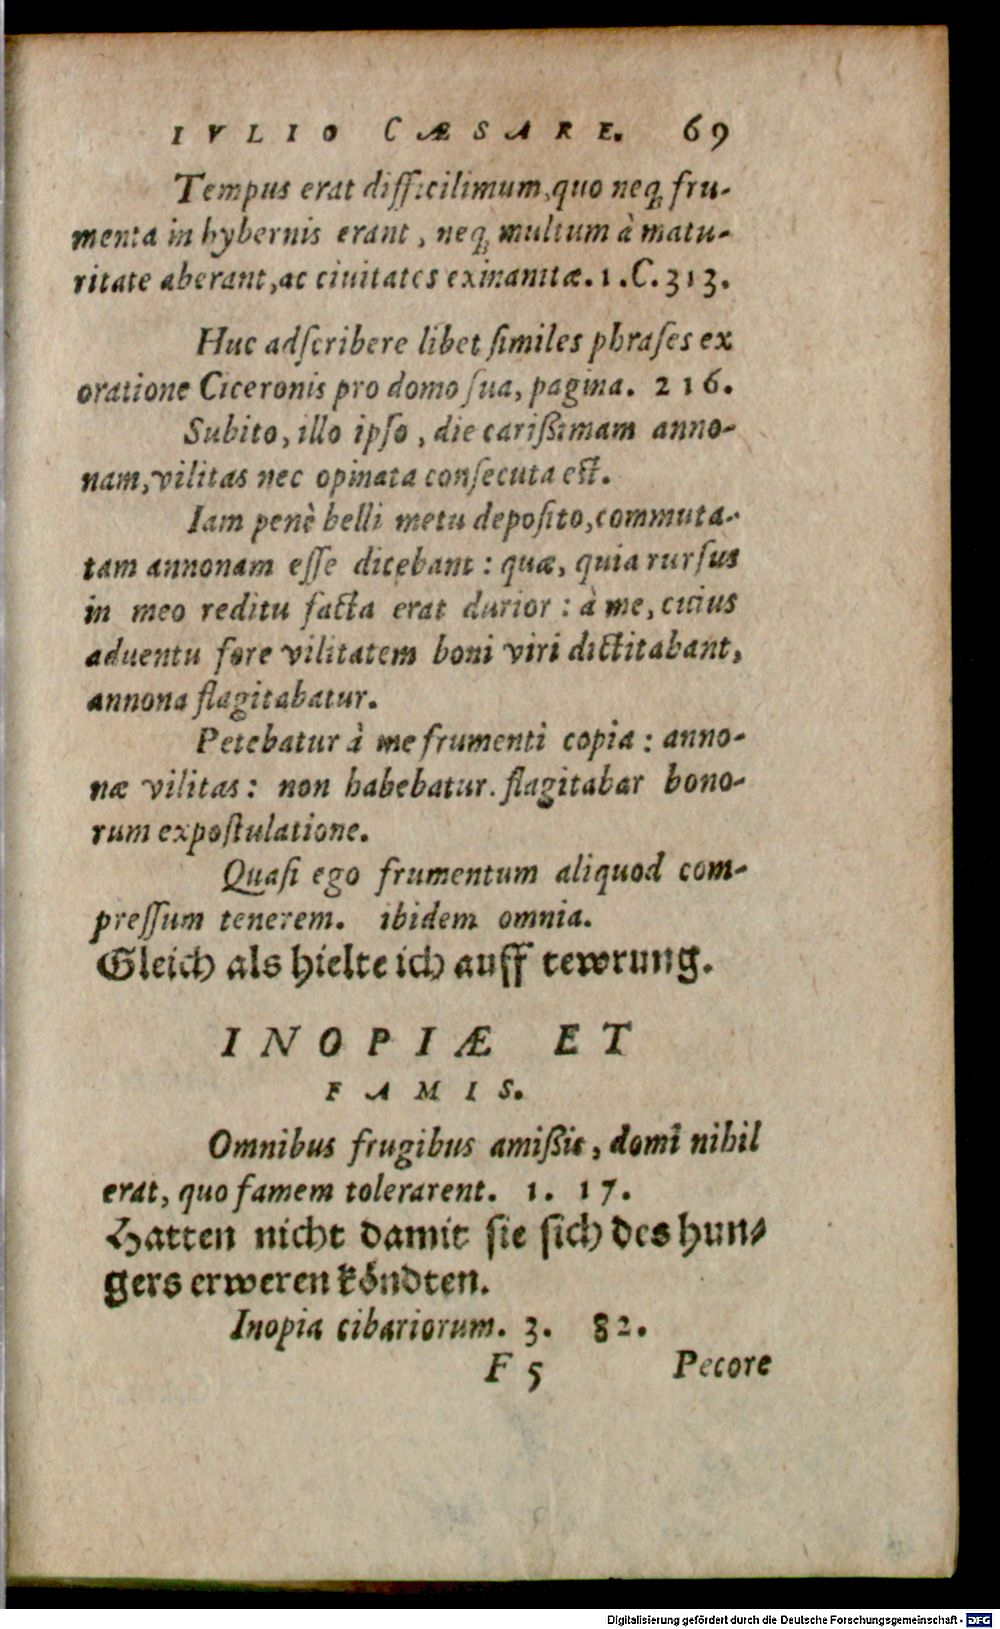 IVLIO CÆSARE. 69
Tempus erat difficilimum, quo neq; fru-
menta in hybernis erant, neq; multum à matu-
ritate aberant, ac ciuitates exinanitæ. 1. C. 313.
Huc adſcribere libet ſimiles phraſes ex
oratione Ciceronis pro domo ſua, pagina. 216.
Subito, illo ipſo, die carißimam anno-
nam, vilitas nec opinata conſecuta eſt.
Iam penè belli metu depoſito, commuta-
tam annonam eſſe dicebant: quæ, quia rurſus
in meo reditu facta erat durior: à me, cuius
aduentu fore vilitatem boni viri dictitabant,
annona flagitabatur.
Petebatur à me frumenti copia: anno-
næ vilitas: non habebatur. flagitabar bono-
rum expoſtulatione.
Quaſi ego frumentum aliquod com-
preſſum tenerem. ibidem omnia.
Gleich als hielte ich auff tewrung.
INOPIÆ ET
FAMIS.
Omnibus frugibus amißis, domi nihil
erat, quo famem tolerarent. 1. 17.
Hatten nicht damit ſie ſich des hun-
gers erweren köndten.
Inopia cibariorum. 3. 82.
F 5 Pecore
Digitalisierung gefördert durch die Deutsche Forschungsgemeinschaft - DFG